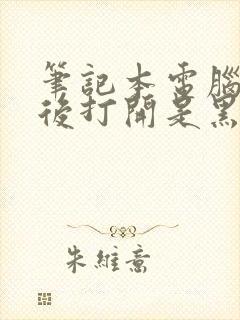 筆記本電腦
後打開是黑
朱維喬